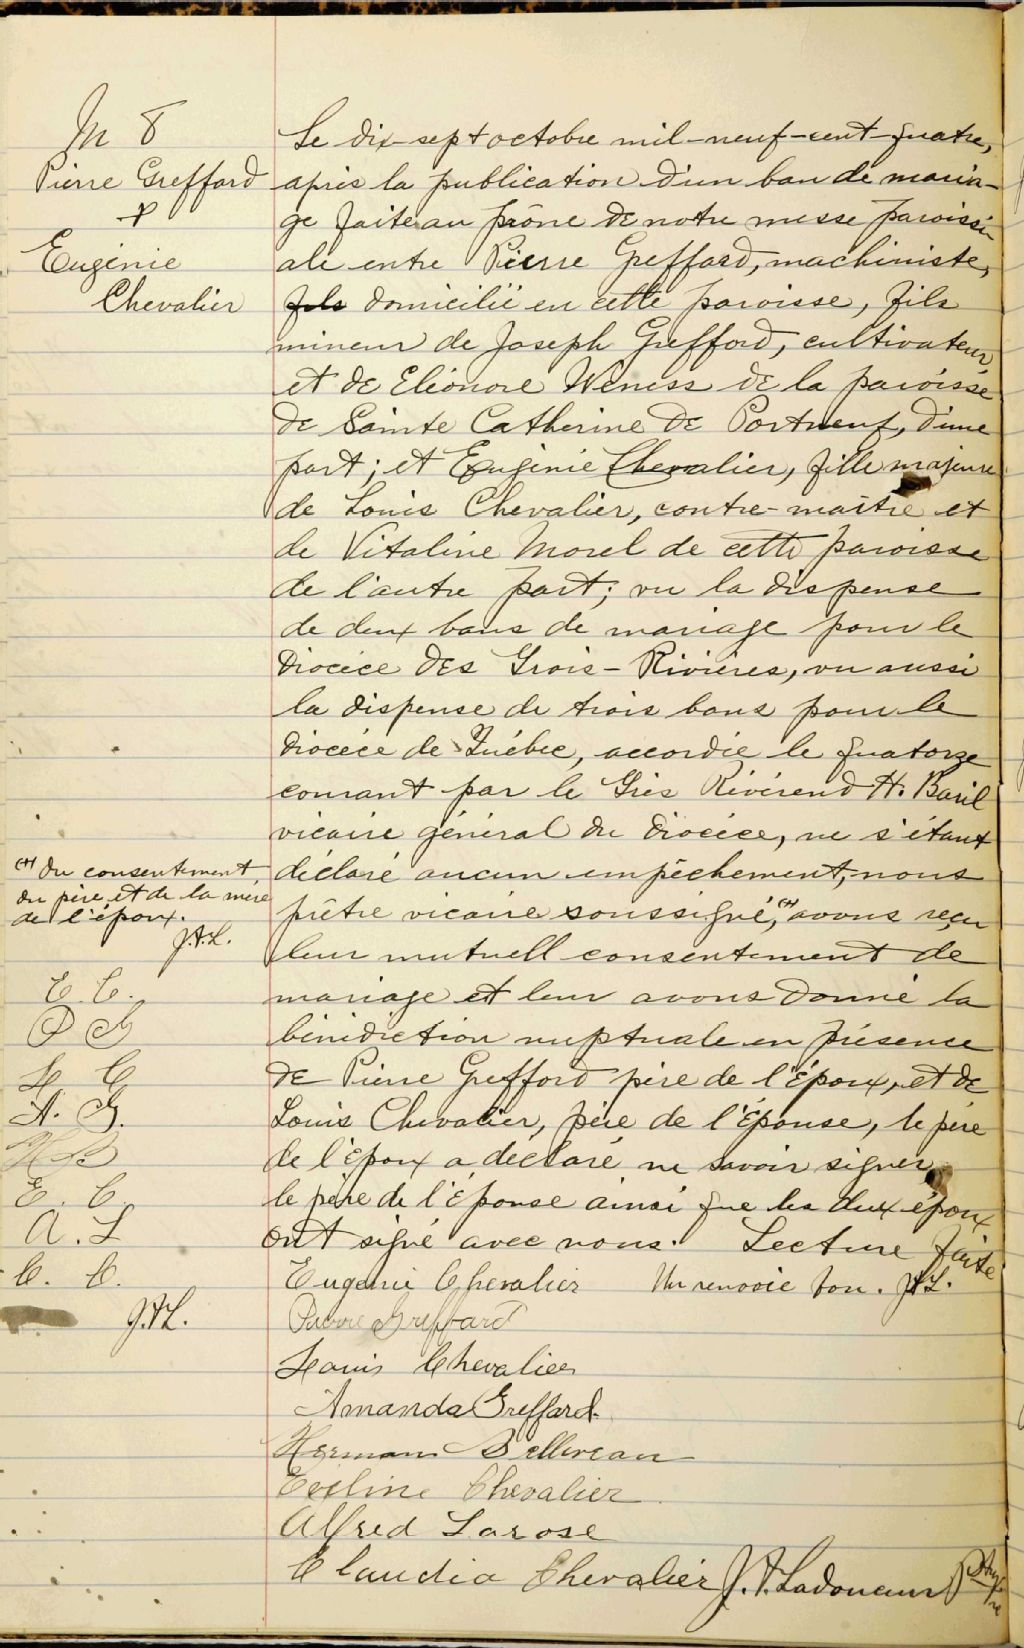 M 8
Pierre Greffard
&
Eugénie
Chevalier
Le dix-sept octobre mil-neuf-cent-quatre,
après la publication d'un ban de maria-
ge faite au prône de notre messe paroissi-
ale entre Pierre Greffard, machiniste,
fils domicilié en cette paroisse, fils
mineur de Joseph Grefford, cultivateur
et de Eléonore Weness de la paroisse
de Sainte Catherine de Portneuf, d'une
part; et Eugénie Chevalier, fille majeure
de Louis Chevalier, contre-maître et
de Vitaline Morel de cette paroisse
de l'autre part; vu la dispense
de deux bans de mariage pour le
Diocèce des Trois-Rivières, vu aussi
la dispense de trois bans pour le
diocèce de Québec, accordée le quatorze
courant par le Très Révérend H. Baril
vicaire général du diocèce, ne s'étant
déclaré aucun empêchement, nous
prêtre vicaire soussigné, (+) avons reçu
leur mutuell consentement de
mariage et leur avons donné la
bénédiction nuptuale en présence
de Pierre Grefford père de l'époux, et de
Louis Chevalier, père de l'épouse, le père
de l'époux a déclaré ne savoir signer
le père de l'épouse ainsi que les deux époux
ont signé avec nous. Lecture faite
(+) du consentement
du père et de la mère
de l'époux.
J.A.L.
E. C.
P G
L. C
A. G.
H B
E. C.
A. L
C. C.
J.A.L.
Eugenie Chevalier Un renvoie bon. J.A.L.
Pierre Greffard
Louis Chevalier
Amanda Greffard
Herman Bellerean
Eveline Chevalier
Alfred Larose
Claudia Chevalier J. A. Ladouceur Ptre